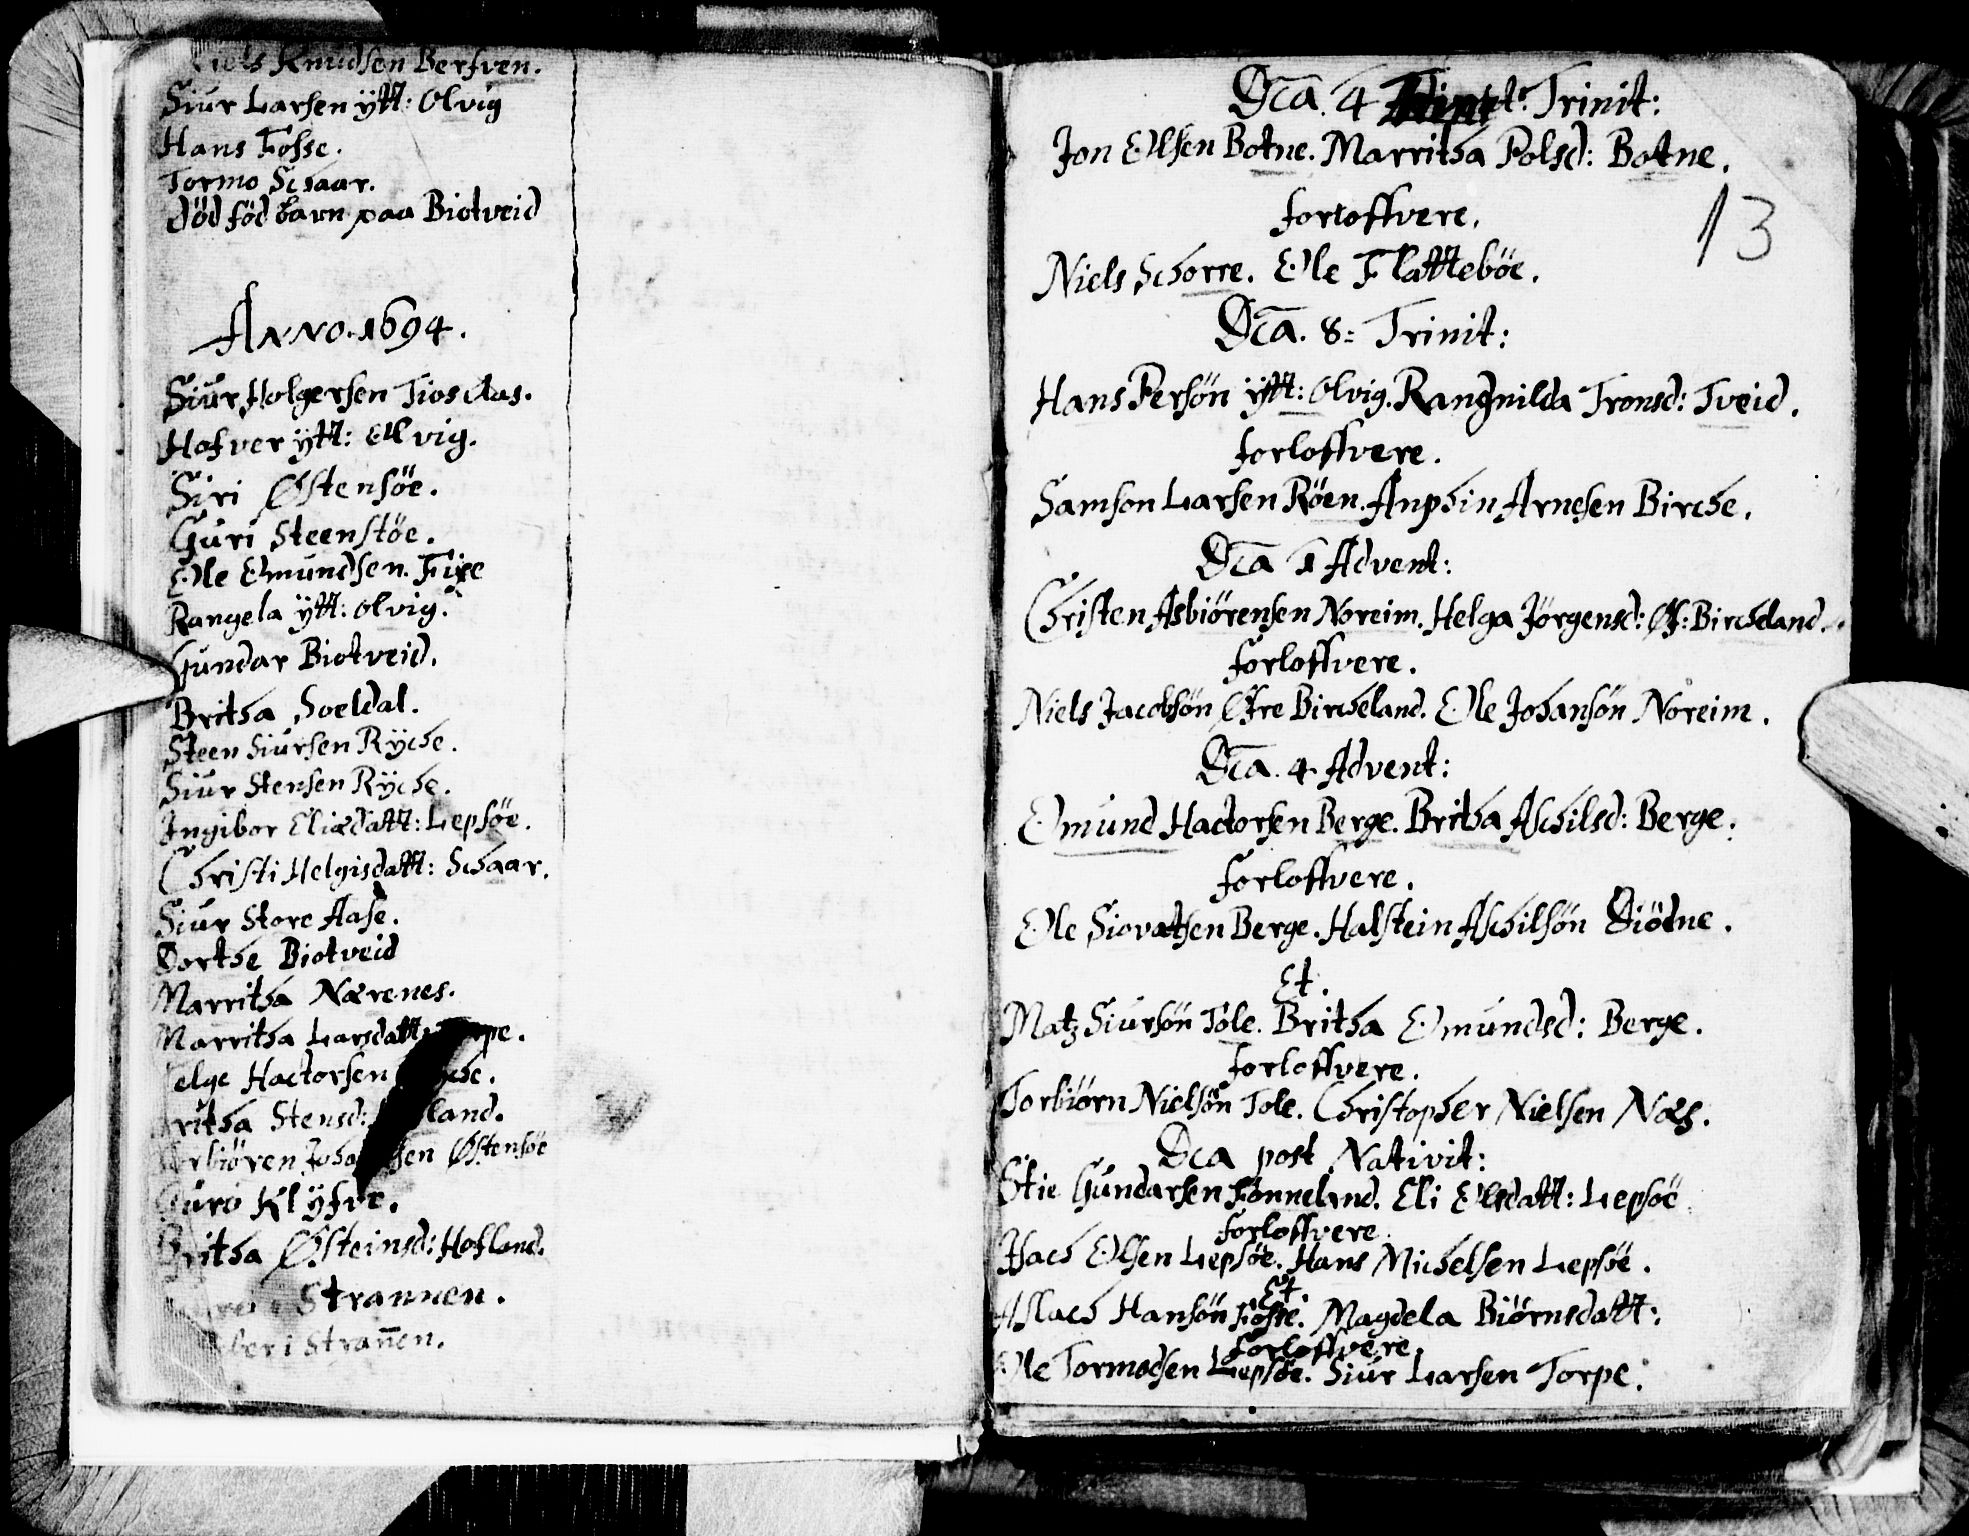 Niels Knudsen Berfven.
Siur Larsen ÿtt: Olvig
Hans Fosse.
Tormo Schaar.
död föd barn paa Biotveid
Anno. 1694.
Siur Holgersen Tios Aas.
Hafver ÿtt: Ølvig.
Siri Østensöe.
Guri Steenstöe.
Ole Omundsen. Fixe
Rangela ÿtt: olvig.
Gundar Biotveid.
Britha Soeldal.
Steen Siursen Rÿche.
Siur Stensen Rÿche.
Ingibor Eliædatt: Lepsöe.
Christi Helgisdatt: Schaar.
Siur Store Aase.
Dorthe Biotveid
Marritha Nærenes.
Marritha Larsdatt: rpe.
elge Hactorsen che.
ritha Stensd: land.
rbiören Joha sen Østensöe
Guro Klÿfve.
Britha Østeinsd: Hofland.
Strannen.
beri Strañen.
Dca. 4 Trinit:
Jon Olsen Botne. Marritha Polsd: Botne.
forloffvere.
13
Niels Schorre. Ole Flatteböe.
Dca. 8: Trinit:
Hans Persön ÿtt: Olvig. Rangnilda Tronsd: Tveid.
forloffvere.
Samson Larsen Röen. Anphin Arnesen Birche.
Dca 1 Advent:
Christen Asbiörensen Noreim. Helga Jörgensd: Øf: Bircheland.
forloffvere.
Niels Jacobsön Øfre Bircheland. Ole Johansön Noreim.
Dca. 4 Advent:
Omund Hactorsen Berge. Britha Aschilsd: Berge.
forloffvere.
Ole Siovatsen Berge. Halstein Aschilsön Diödne.
Et.
Matz Siursön Tole. Britha Omundsd: Berge.
forloffvere.
Torbiörn Nielsön Tole. Christopher Nielsen Næs.
Dca post Nativit:
Stie Gundarsen Fonneland. Eli Olsdatt: Lepsöe
forloffvere
Isach Olsen Lepsöe. Hans Michelsen Lepsöe.
Et.
Aslach Hansön Fosse. Magdela Biörnsdatt:
forloffvere.
Ole Tormodsen Lepsöe. Siur Larsen Torpe.